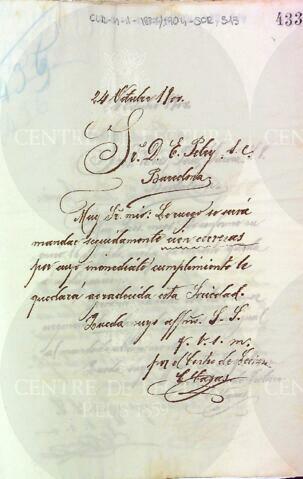 CLR-4-1-1877/1904-SOR, 313
433
24 Octubre 1900.
Sr. D. E. Pely S. C.
Barcelona
Muy Sr. mio: Le ruego se sirva
mandar seguidamente
por cuyo inmediato cumplimiento le
quedará agradecida esta Sociedad.
Queda suyo affmo. S. S.
q. b. s. m.
por el Centro de Lectura
CENTRE DE LECTURA
REUS 1859